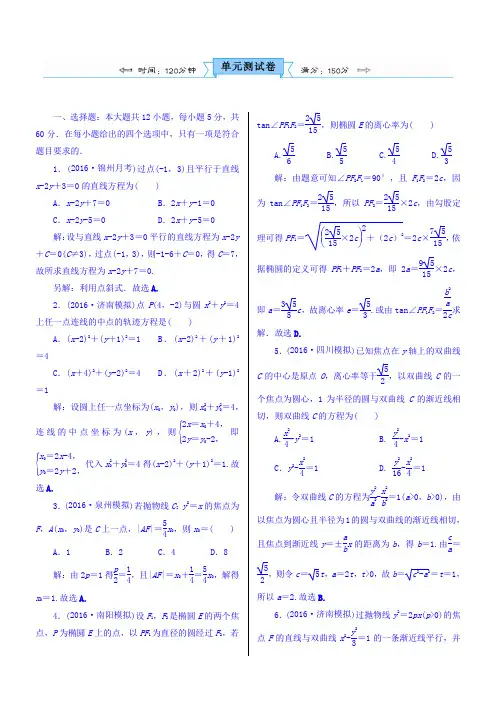 单元测试卷
时间：120分钟 满分：150分
一、选择题：本大题共12小题，每小题5分，共
60分．在每小题给出的四个选项中，只有一项是符合
题目要求的．
1．(2016·锦州月考)过点(-1，3)且平行于直线
x-2y+3=0的直线方程为( )
A．x-2y+7=0 B．2x+y-1=0
C．x-2y-5=0 D．2x+y-5=0
解：设与直线x-2y+3=0平行的直线方程为x-2y
+C=0(C≠3)，过点(-1，3)，则-1-6+C=0，得C=7，
故所求直线方程为x-2y+7=0.
另解：利用点斜式．故选A.
2．(2016·济南模拟)点P(4，-2)与圆x²+y²=4
上任一点连线的中点的轨迹方程是( )
A．(x-2)²+(y+1)²=1 B．(x-2)²+(y+1)²
=4
C．(x+4)²+(y-2)²=4 D．(x+2)²+(y-1)²
=1
解：设圆上任一点坐标为(x₀，y₀)，则x₀²+y₀²=4，
连线的中点坐标为(x，y)，则{2x=x₀+4，2y=y₀-2，即
{x₀=2x-4，y₀=2y+2，代入x₀²+y₀²=4得(x-2)²+(y+1)²=1.故
选A.
3．(2016·泉州模拟)若抛物线C：y²=x的焦点为
F，A(x₀，y₀)是C上一点，|AF|=5/4x₀，则x₀=( )
A．1 B．2 C．4 D．8
解：由2p=1得p/2=1/4，且|AF|=x₀+1/4=5/4x₀，解得
x₀=1.故选A.
4．(2016·南阳模拟)设F₁，F₂是椭圆E的两个焦
点，P为椭圆E上的点，以PF₁为直径的圆经过F₂，若
tan∠PF₁F₂=2√5/15，则椭圆E的离心率为( )
A.√5/6 B.√5/5 C.√5/4 D.√5/3
解：由题意可知∠PF₂F₁=90°，且F₁F₂=2c，因
为tan∠PF₁F₂=2√5/15，所以PF₂=2√5/15×2c，由勾股定
理可得PF₁=√((2√5/15×2c)²+(2c)²)=2c×7√5/15，依
据椭圆的定义可得PF₁+PF₂=2a，即2a=9√5/15×2c，
即a=3√5/5c，故离心率e=√5/3.或由tan∠PF₁F₂=(b²/a)/2c求
解．故选D.
5．(2016·四川模拟)已知焦点在y轴上的双曲线
C的中心是原点O，离心率等于√5/2，以双曲线C的一
个焦点为圆心，1为半径的圆与双曲线C的渐近线相
切，则双曲线C的方程为( )
A.x²/4-y²=1 B.y²/4-x²=1
C．y²-x²/4=1 D.y²/16-x²/4=1
解：令双曲线C的方程为y²/a²-x²/b²=1(a>0，b>0)，由
以焦点为圆心且半径为1的圆与双曲线的渐近线相切，
且焦点到渐近线y=±a/bx的距离为b，得b=1.由c/a=
√5/2，则令c=√5t，a=2t，t>0，故b=√(c²-a²)=t=1，
所以a=2.故选B.
6．(2016·济南模拟)过抛物线y²=2px(p>0)的焦
点F的直线与双曲线x²-y²/3=1的一条渐近线平行，并